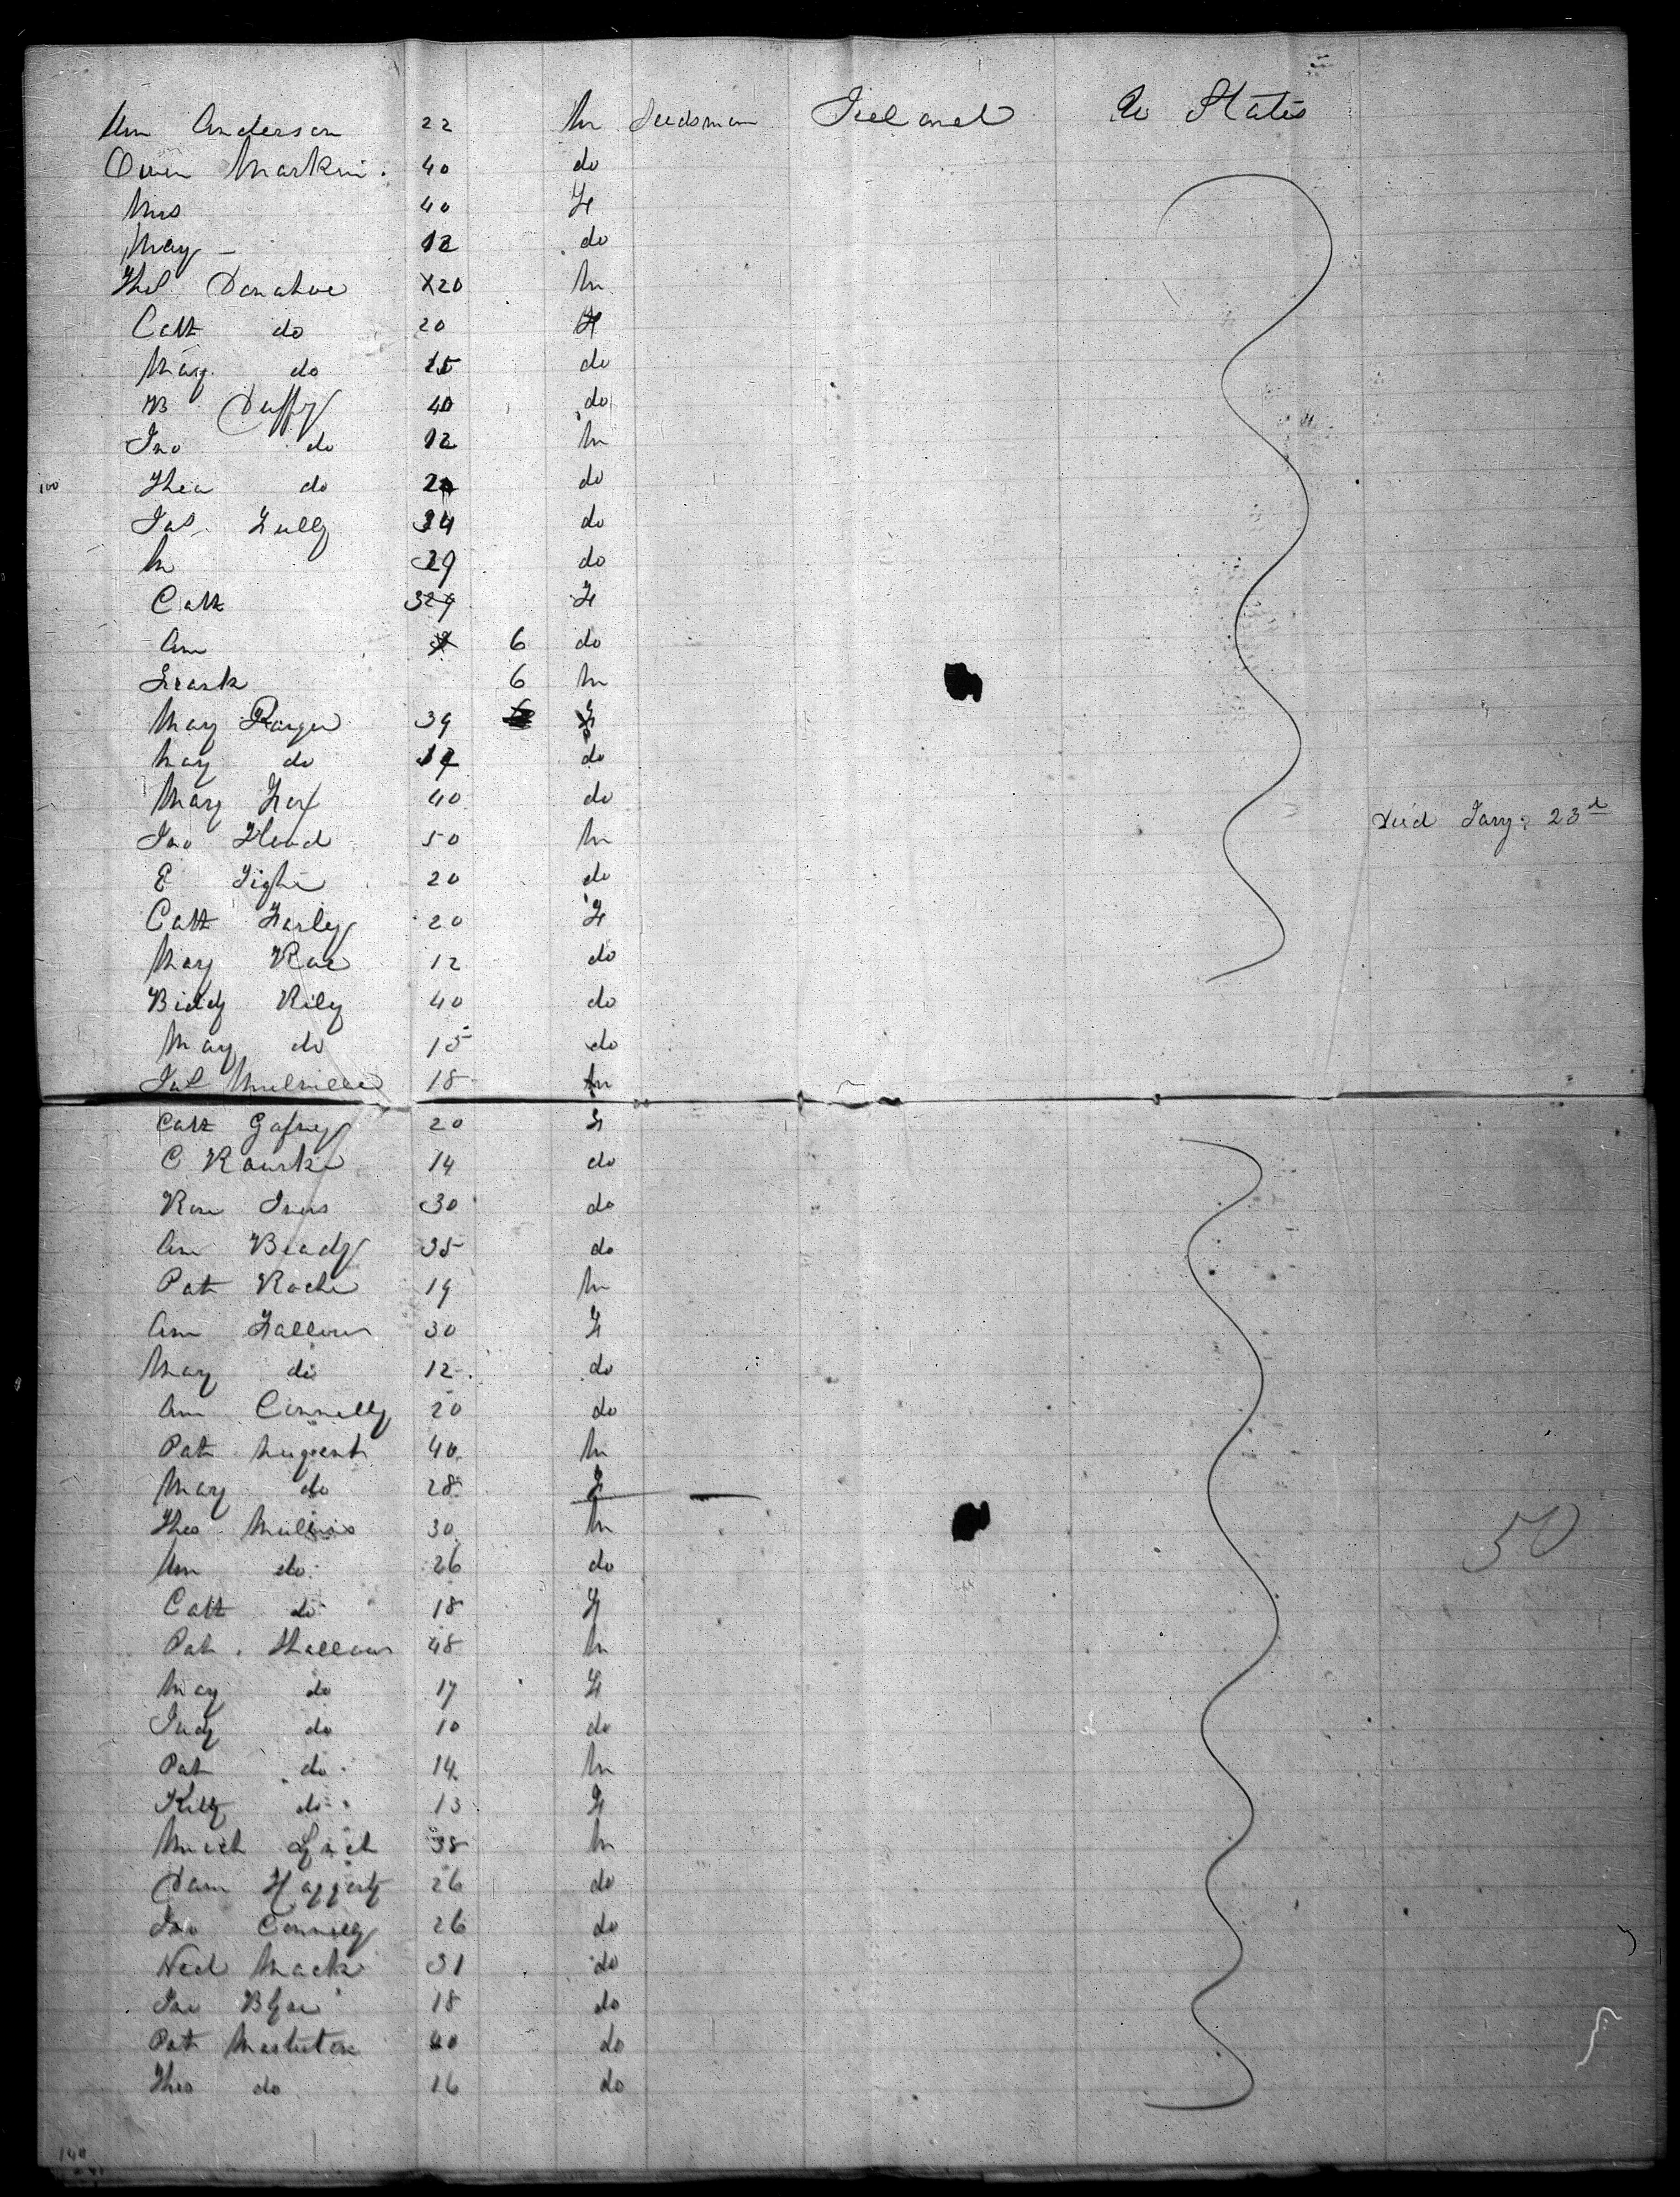 Wm Anderson 22 M Seedsman Ireland U States
Owen Markin. 40 do
Mrs 40 F
Mary - 12 do
Thos Donahoe 20 M
Cath do 20 F
Mary do 15 do
B Duffy 40 do
Jno do 12 M
100 Thos do 20 do
Jas. Fully 34 do
M 29 do
Cath 32 F
Ann 6 do
Frank 6 M
Mary 39 F
Mary do 14 do
Mary Fox 40 do
Jno Flood 50 M died Jany: 23d
E Tighe 20 do
Cath Farly 20 F
Mary Rae 12 do
Biddy Rily 40 do
Mary do 15 do
Jas 18 M
Cath Gafney 20 F
C Rourke 14 do
Rose 30 do
Ann Brady 35 do
Pat Roche 19 M
Ann Fallon 30 F
Mary do 12 do
Ann Connelly 20 do
Pat Nugent 40 M
Mary do 28 F
Thos Mullins 30 M 50
Wm do 26 do
Cath do 18 F
Pat. 48 M
Mary do 17 F
Judy do 10 do
Pat do 14 M
Kitty do 13 F
Mich 38 M
Dam Haggerty 26 do
Jno Connelly 26 do
Ned Mack 31 do
Jno 18 do
Pat 40 do
Thos do 16 do
140